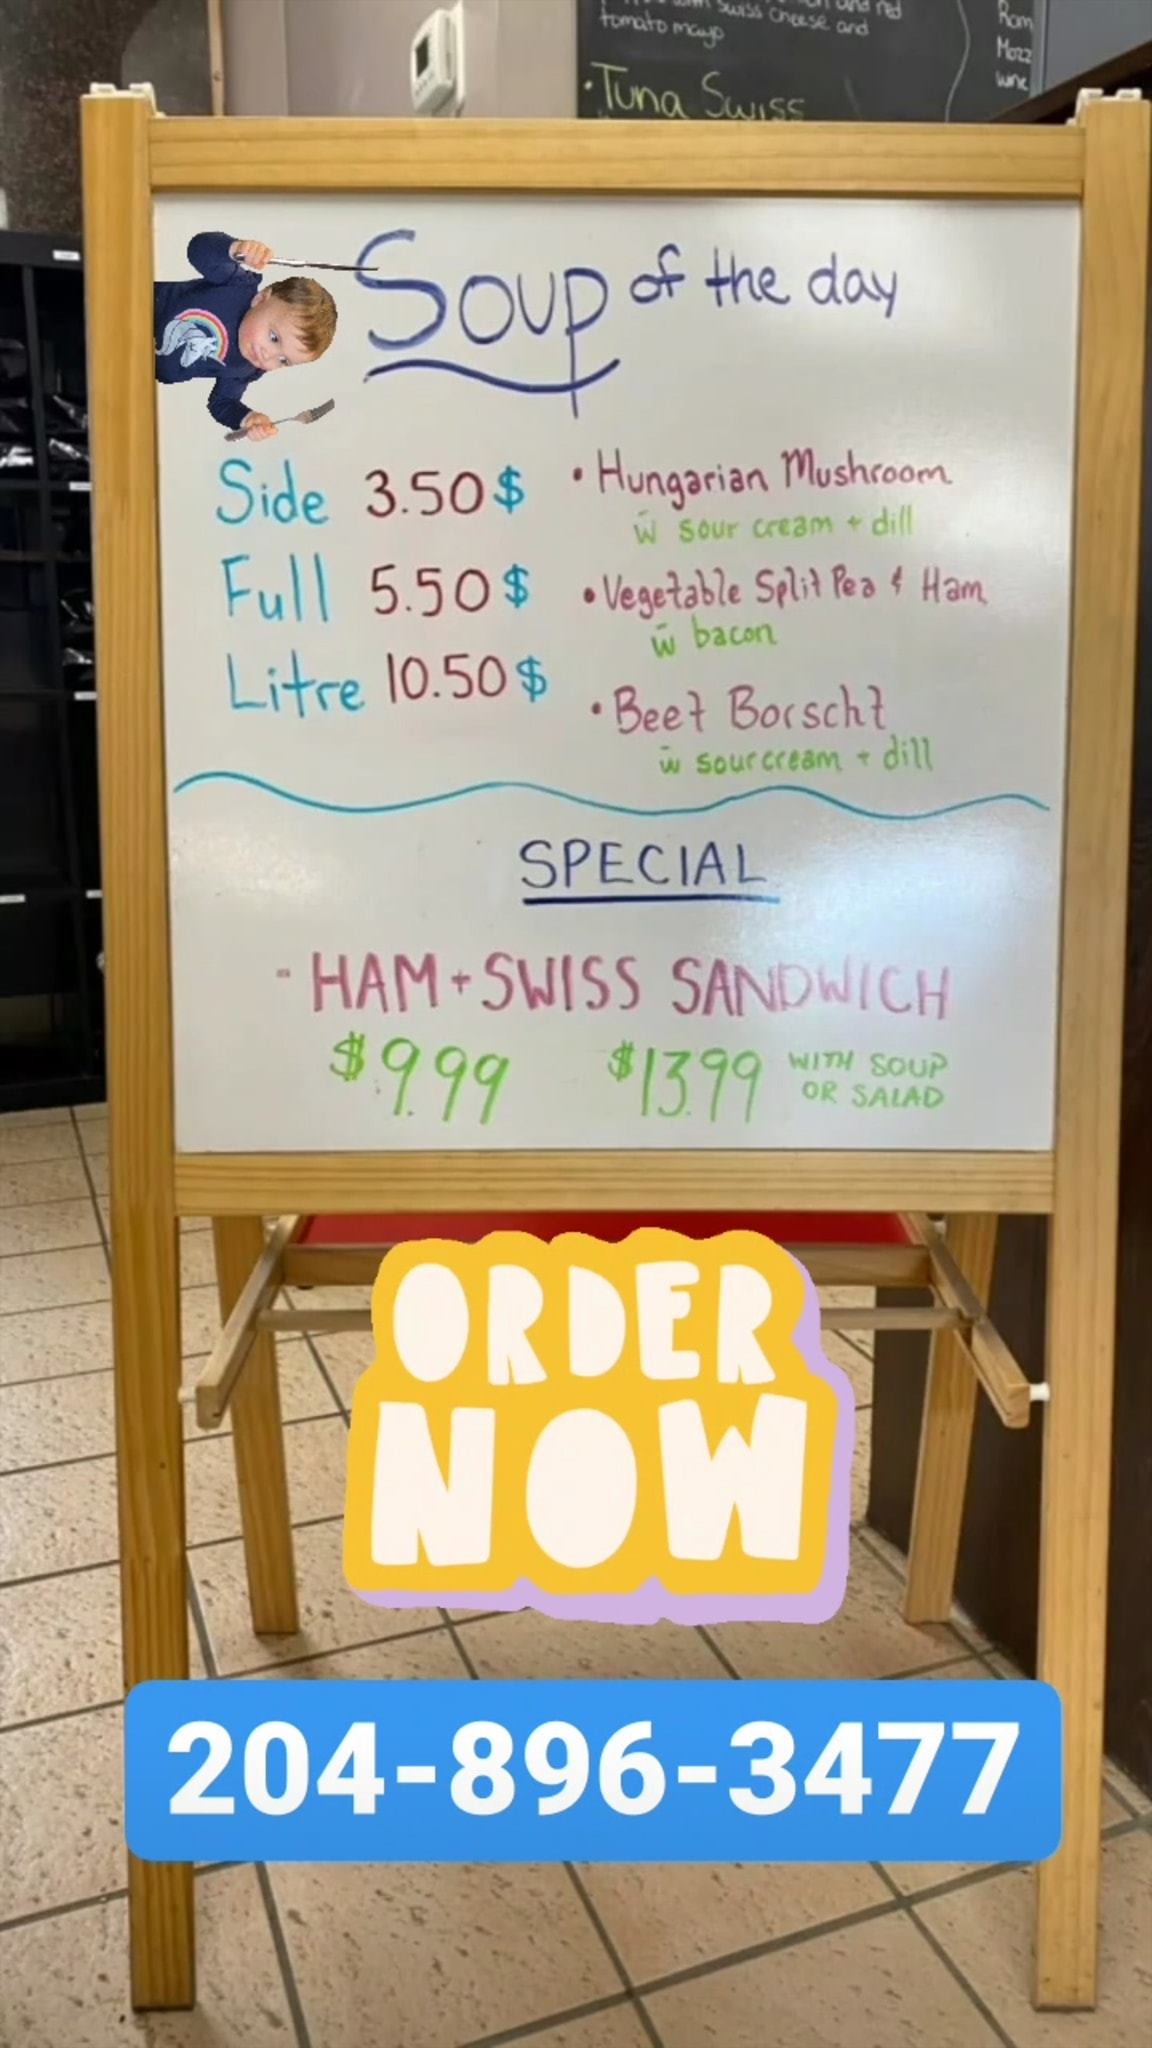 with Swiss cheese and
tomato mayo
and red
• Tuna Swiss
Rom
Mozz
Soup of the day
Side 3.50$
Full 5.50$
Litre 10.50$
• Hungarian Mushroom
w̄ sour cream + dill
• Vegetable Split Pea & Ham
w̄ bacon
• Beet Borscht
w̄ sour cream + dill
SPECIAL
- HAM + SWISS SANDWICH
$9.99 $13.99 WITH SOUP
OR SALAD
ORDER
NOW
204-896-3477